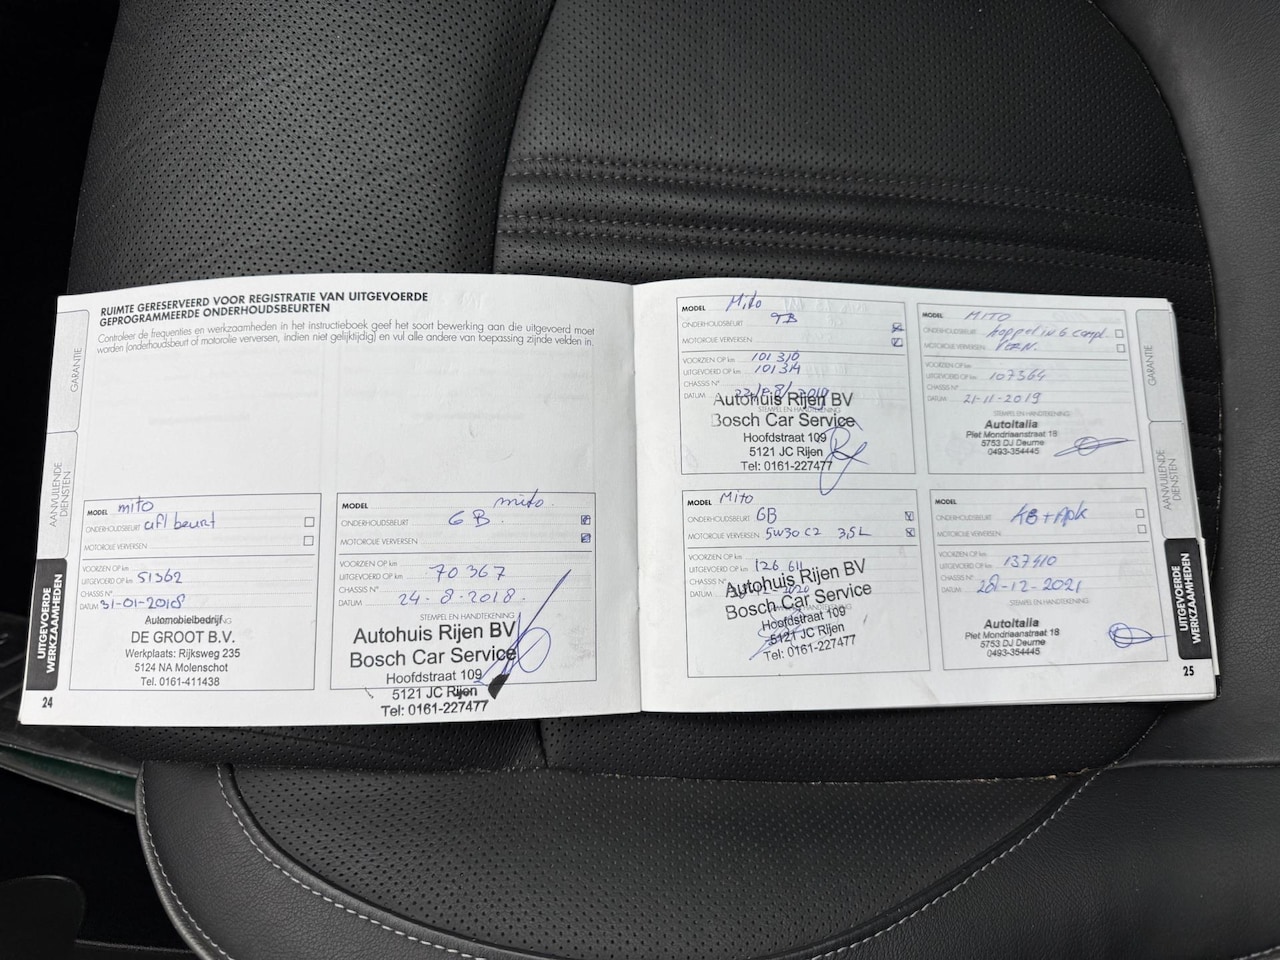 RUIMTE GERESERVEERD VOOR REGISTRATIE VAN UITGEVOERDE
GEPROGRAMMEERDE ONDERHOUDSBEURTEN
Controleer de frequenties en werkzaamheden in het instructieboek geef het soort bewerking aan die uitgevoerd moet
worden (onderhoudsbeurt of motorolie verversen, indien niet gelijktijdig) en vul alle andere van toepassing zijnde velden in.
GARANTIE
AANVULLENDE
DIENSTEN
UITGEVOERDE
WERKZAAMHEDEN
24
MODEL mito
ONDERHOUDSBEURT afl beurt
MOTOROLIE VERVERSEN
VOORZIEN OP km
UITGEVOERD OP km 51362
CHASSIS N°
DATUM 31-01-2018
Automobielbedrijf
DE GROOT B.V.
Werkplaats: Rijksweg 235
5124 NA Molenschot
Tel. 0161-411438
MODEL mito
ONDERHOUDSBEURT GB.
MOTOROLIE VERVERSEN
VOORZIEN OP km
UITGEVOERD OP km 70367
CHASSIS N°
DATUM 24-8-2018.
STEMPEL EN HANDTEKENING
Autohuis Rijen BV
Bosch Car Service
Hoofdstraat 109
5121 JC Rijen
Tel: 0161-227477
MODEL Mito
ONDERHOUDSBEURT
MOTOROLIE VERVERSEN
VOORZIEN OP km 101310
UITGEVOERD OP km 101314
CHASSIS N°
DATUM 2019
STEMPEL EN HANDTEKENING
Autohuis Rijen BV
Bosch Car Service
Hoofdstraat 109
5121 JC Rijen
Tel: 0161-227477
MODEL MITO
ONDERHOUDSBEURT
MOTOROLIE VERVERSEN VERN.
VOORZIEN OP km
UITGEVOERD OP km 107364
CHASSIS N°
DATUM 21-11-2019
STEMPEL EN HANDTEKENING
AutoItalia
Piet Mondriaanstraat 18
5753 DJ Deurne
0493-354445
MODEL Mito
ONDERHOUDSBEURT GB
MOTOROLIE VERVERSEN 5W30 C2 3,5L
VOORZIEN OP km
UITGEVOERD OP km 126.611
CHASSIS N°
DATUM 2020
Autohuis Rijen BV
Bosch Car Service
Hoofdstraat 109
5121 JC Rijen
Tel: 0161-227477
MODEL
ONDERHOUDSBEURT KB + Apk
MOTOROLIE VERVERSEN
VOORZIEN OP km
UITGEVOERD OP km 137410
CHASSIS N°
DATUM 28-12-2021
STEMPEL EN HANDTEKENING
AutoItalia
Piet Mondriaanstraat 18
5753 DJ Deurne
0493-354445
GARANTIE
AANVULLENDE
DIENSTEN
UITGEVOERDE
WERKZAAMHEDEN
25